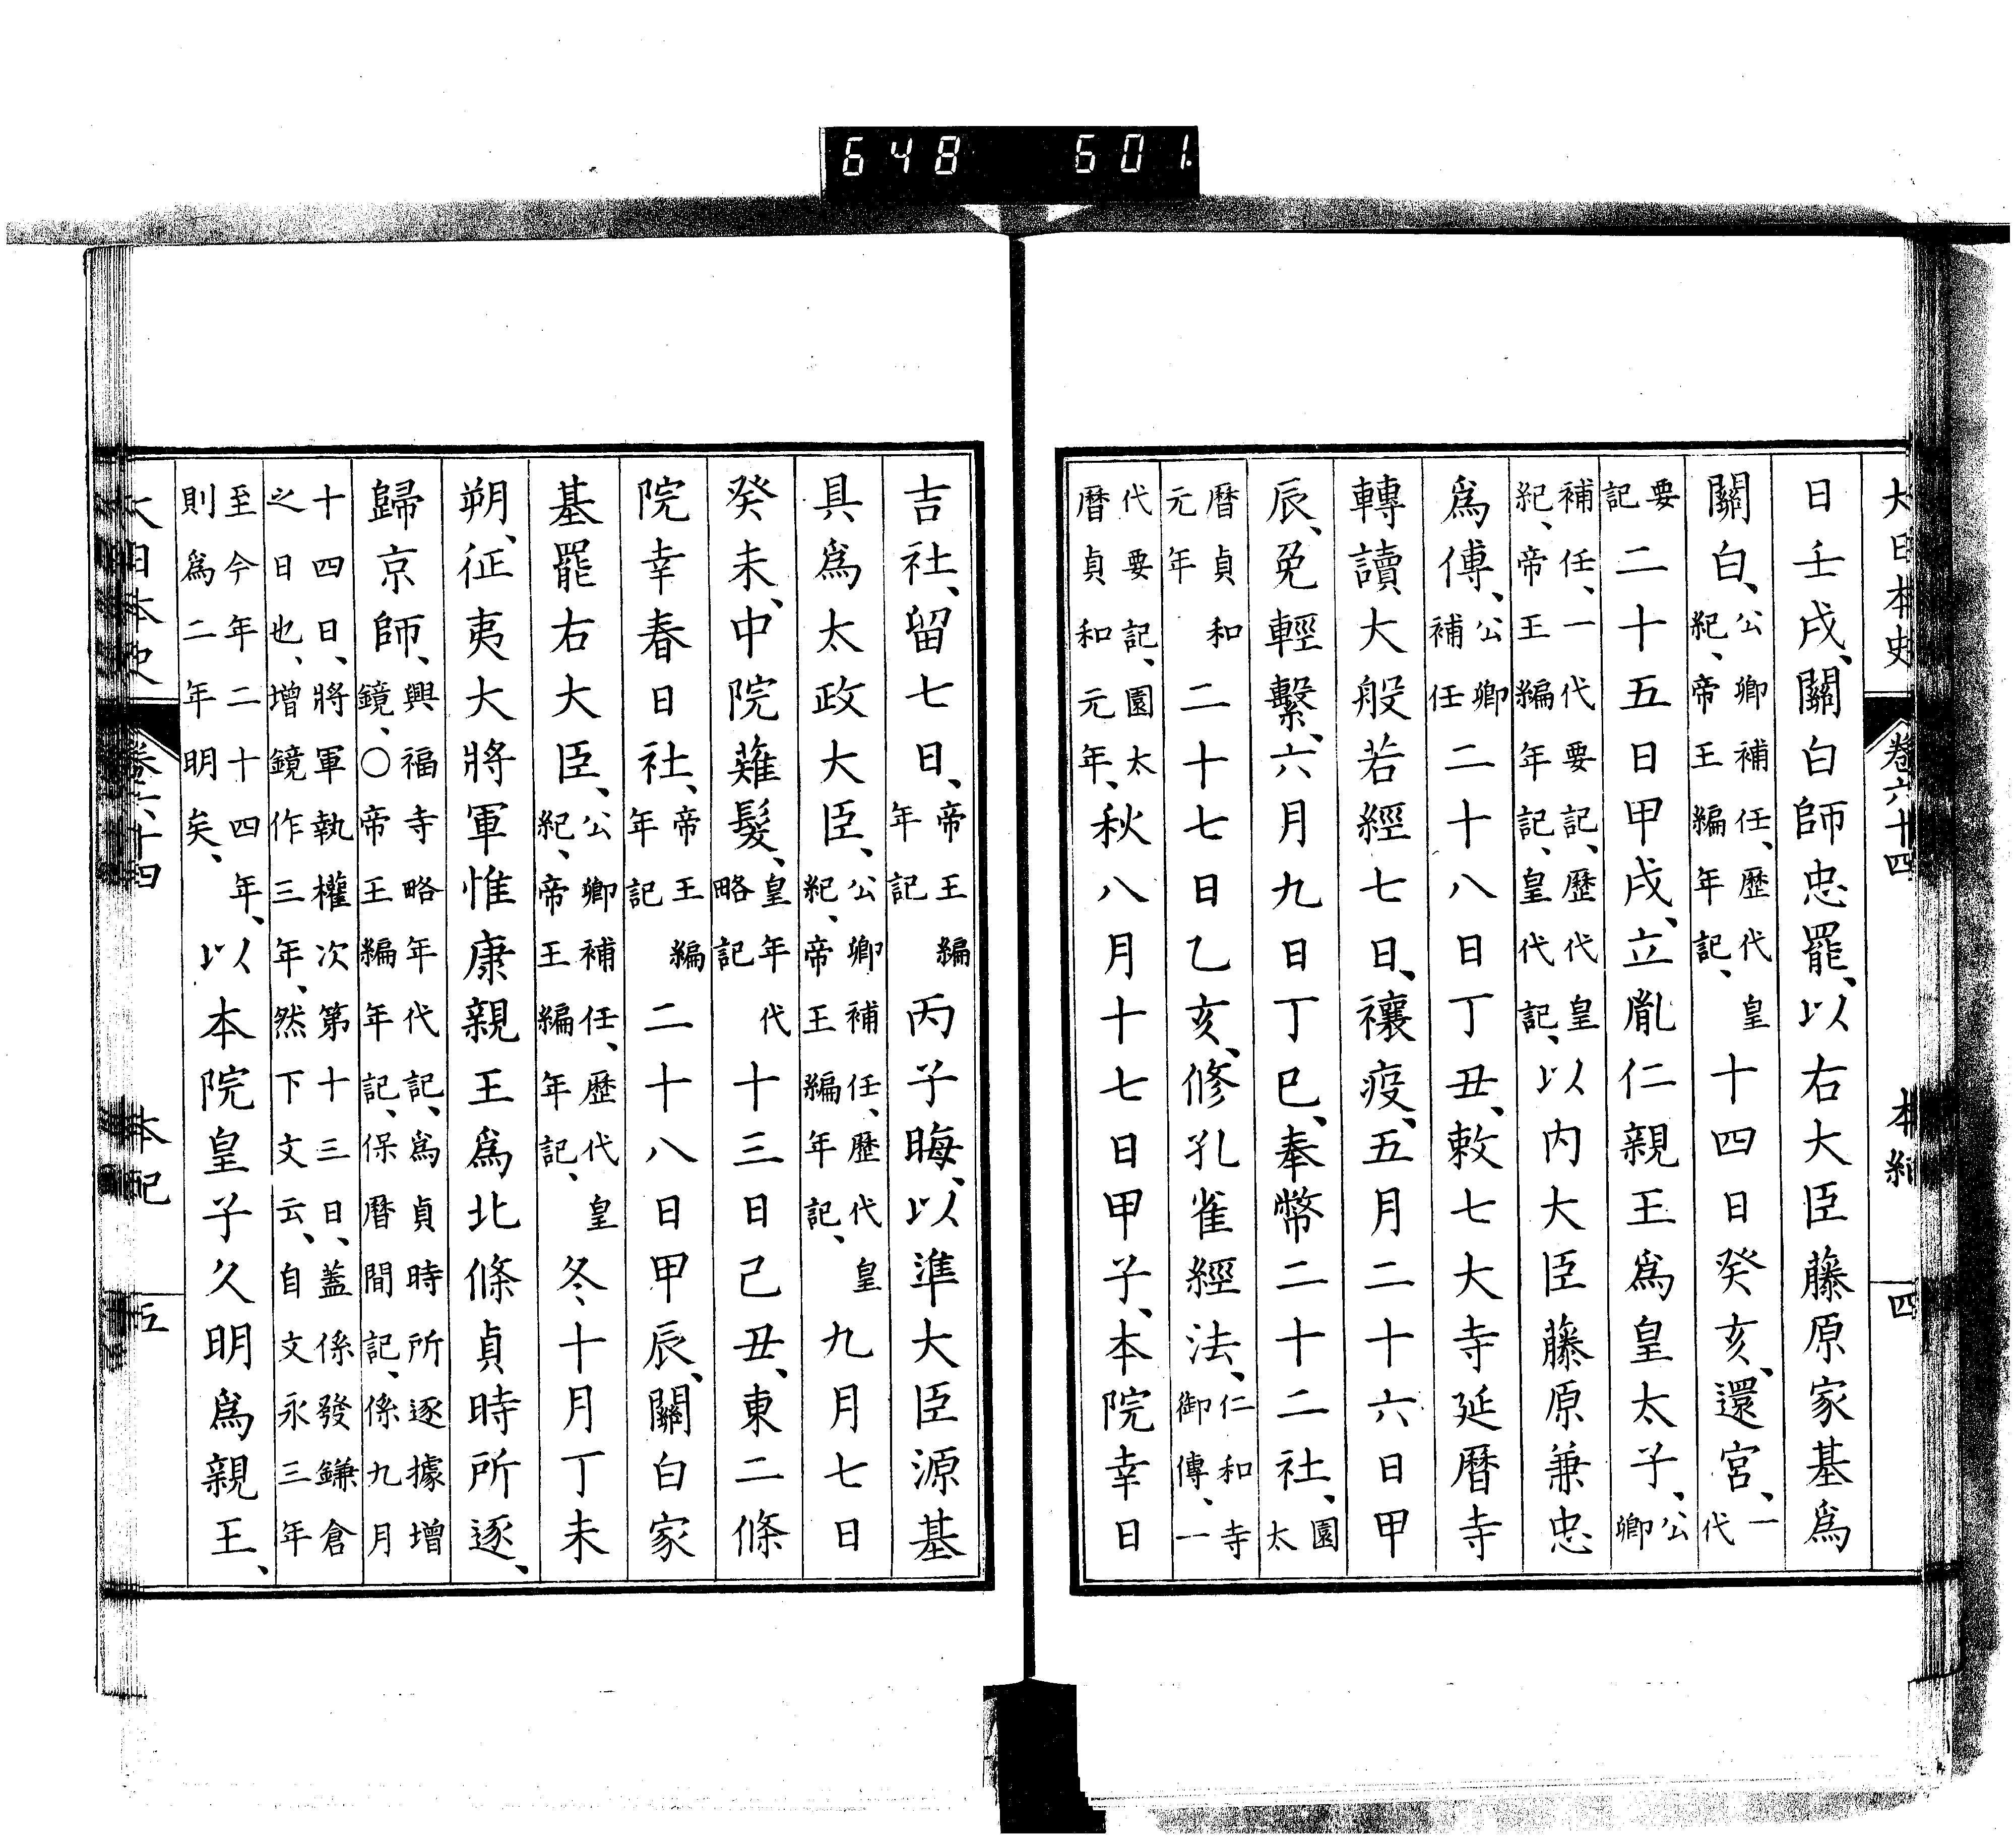 648 601.
大日本史 卷六十四 本紀 四
日壬戌、關白師忠罷、以右大臣藤原家基爲
關白、公卿補任、歷代皇紀、帝王編年記、十四日癸亥、還宮、一代
要記二十五日甲戌、立胤仁親王爲皇太子、公卿
補任、一代要記、歷代皇紀、帝王編年記、皇代記、以内大臣藤原兼忠
爲傅、公卿補任二十八日丁丑、敕七大寺延曆寺
轉讀大般若經七日、禳疫、五月二十六日甲
辰、免輕繫、六月九日丁巳、奉幣二十二社、園太
曆貞和元年二十七日乙亥、修孔雀經法、仁和寺御傳、一
代要記、園太曆貞和元年、秋八月十七日甲子、本院幸日
吉社、留七日、帝王編年記丙子晦、以準大臣源基
具爲太政大臣、公卿補任、歷代皇紀、帝王編年記、九月七日
癸未、中院薙髮、皇年代略記十三日己丑、東二條
院幸春日社、帝王編年記二十八日甲辰、關白家
基罷右大臣、公卿補任、歷代皇紀、帝王編年記、冬十月丁未
朔、征夷大將軍惟康親王爲北條貞時所逐、
歸京師、興福寺略年代記、爲貞時所逐據增鏡、○帝王編年記、保曆間記、係九月
十四日、將軍執權次第十三日、蓋係發鎌倉之日也、增鏡作三年、然下文云、自文永三年
至今年二十四年、則爲二年明矣、以本院皇子久明爲親王、
大日本史 卷六十四 本紀 五